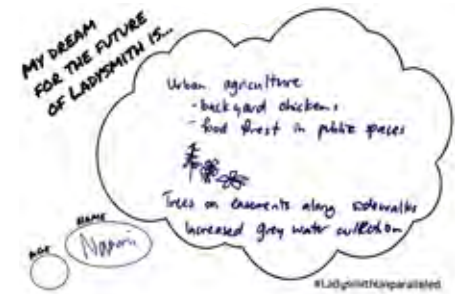 MY DREAM
FOR THE FUTURE
OF LADYSMITH IS...
Urban agriculture
- backyard chickens
- food forest in public spaces
Trees on easements along sidewalks
Increased grey water collection
NAME
Naomi
AGE
#LadysmithUnparalleled